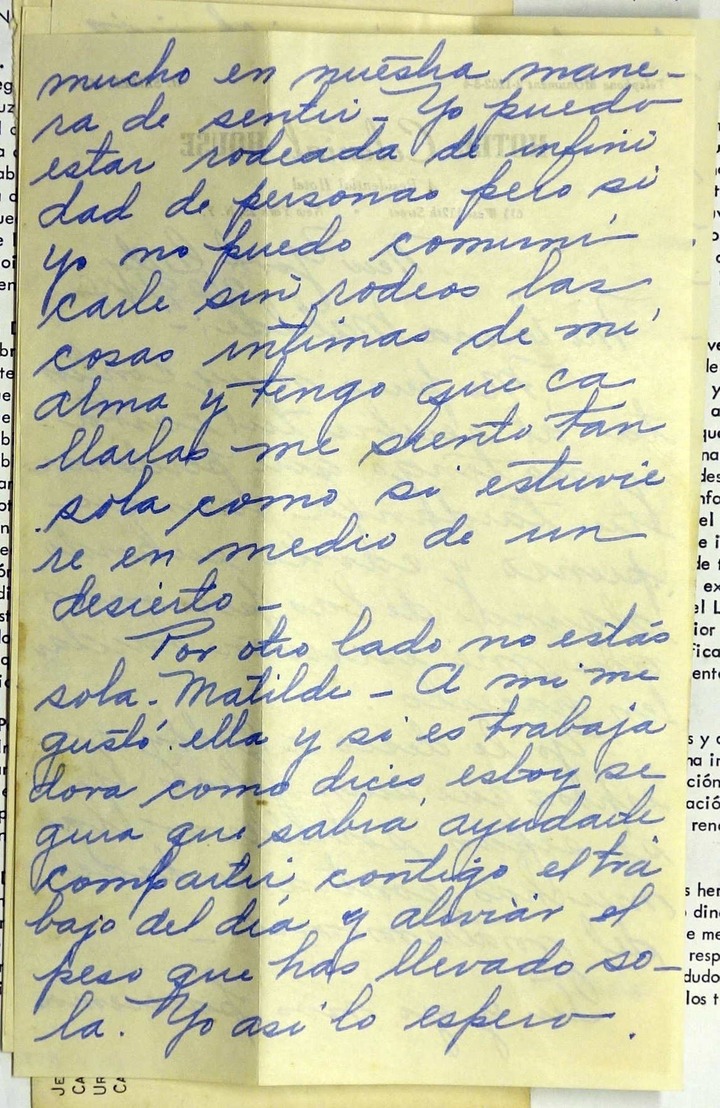 mucho en nuestra mane-
ra de sentir - Yo puedo
estar rodeada de infini
dad de personas pero si
yo no puedo comuni
carle sin rodeos las
cosas intimas de mi
alma y tengo que ca
llarlas me siento tan
sola como si estuvie
re en medio de un
desierto -
Por otro lado no estás
sola. Matilde - A mi me
gustó ella y si es trabaja
dora como dices estoy se
gura que sabrá ayudarte
compartir contigo el tra
bajo del día y aliviar el
peso que has llevado so-
la. Yo asi lo espero.